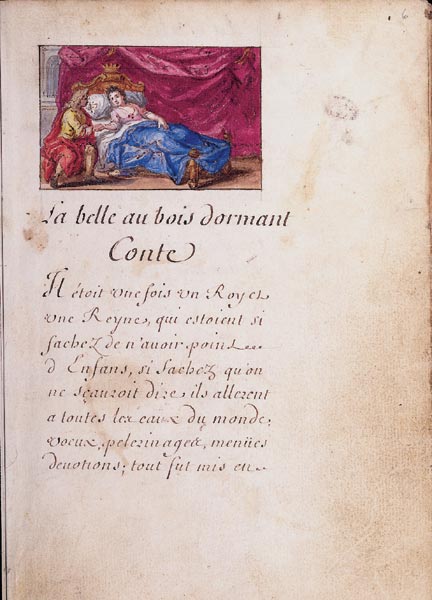 6
La belle au bois dormant
Conte
Il étoit une fois un Roy et
une Reyne, qui estoient si
fachez de n'avoir point
d'Enfans, si fachez qu'on
ne sçauroit dire, ils allerent
a toutes les eaux du monde,
voeux, pelerinages, menües
devotions; tout fut mis en